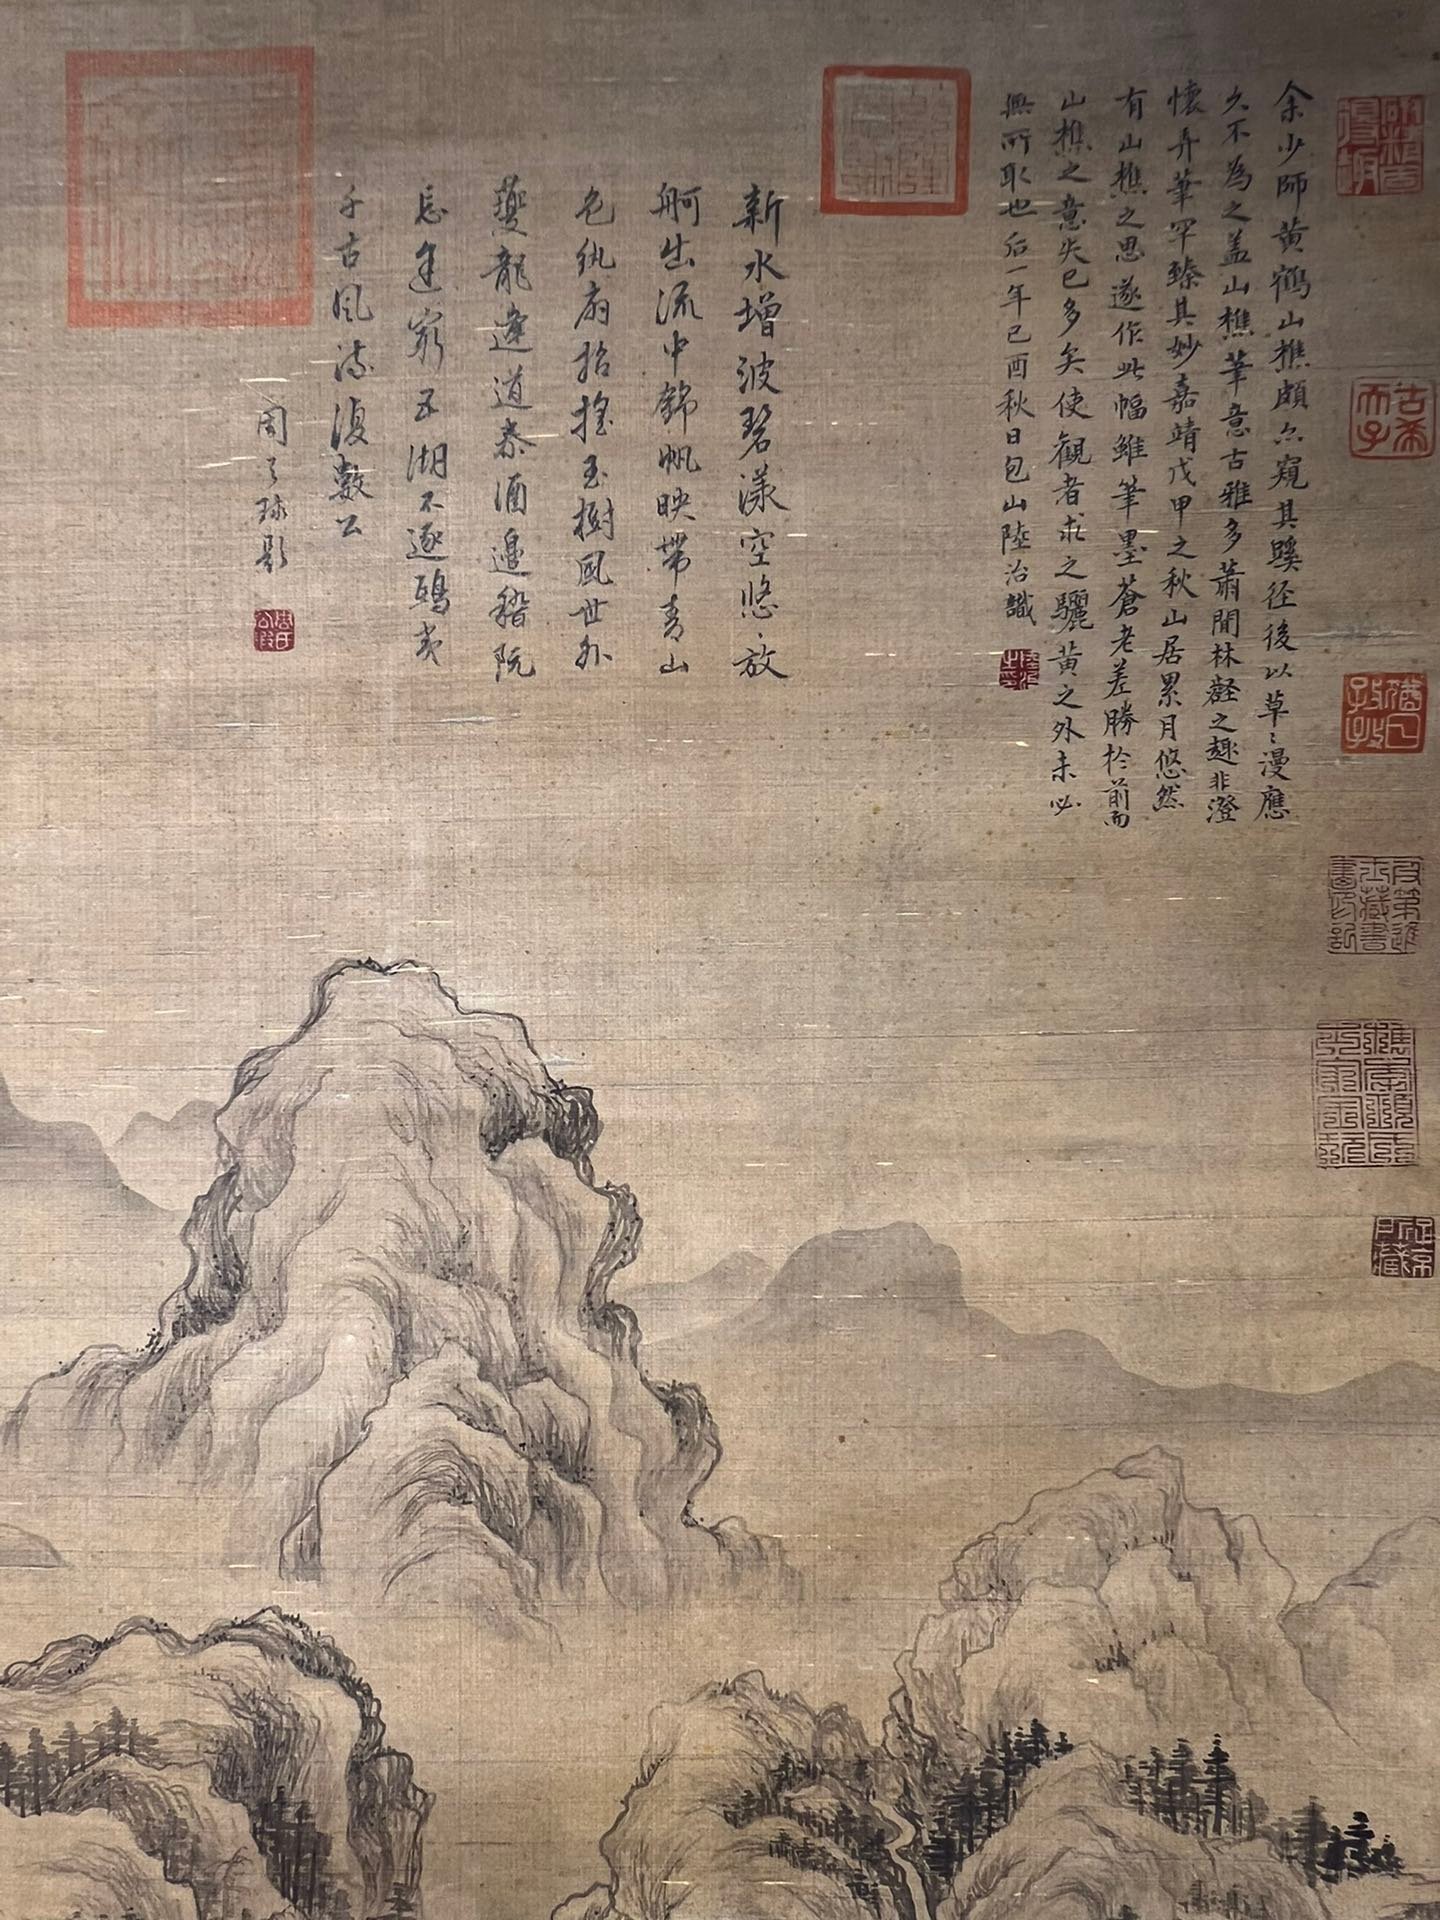 余少師黄鶴山樵頗亦窺其蹊徑後以草〻漫應
久不為之盖山樵筆意古雅多蕭閒林壑之趣非澄
懷弄筆罕臻其妙嘉靖戊甲之秋山居累月悠然
有山樵之思遂作此幅雖筆墨蒼老差勝於前而
山樵之意失已多矣使觀者求之驪黄之外未必
無所取也后一年已酉秋日包山陸治識
新水增波碧漾空悠〻放
舸出流中錦帆映帶青山
色紈扇招摇玉樹風世外
夔龍違道泰酒邊嵇阮
忘年窮五湖不逐鴟夷
千古風流復數公
周之球題
古希
天子